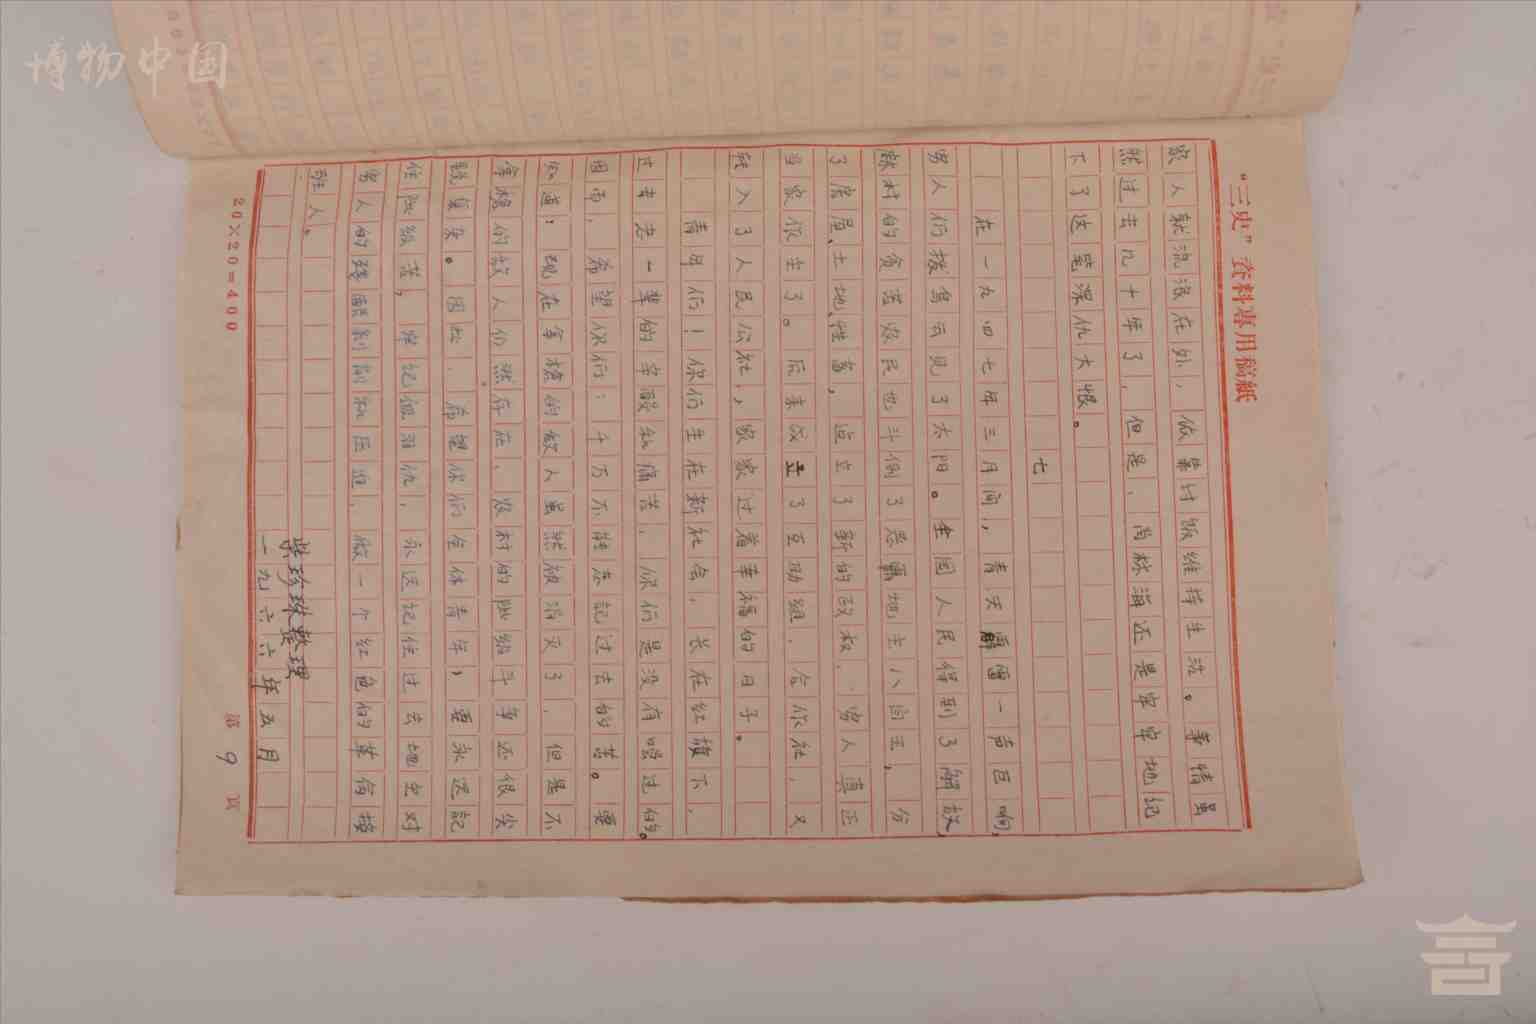 博物中国
"三史"资料专用稿紙
家人就流浪在外，做靠讨饭维持生活。事情虽
然过去几十年了，但是，尚林海还是牢牢地记
下了这笔深仇大恨。
七
在一九四七年三月间，青天霹雷一声巨响，
穷人们拨乌云见了太阳。全国人民得到了解放，
林村的贫苦农民也斗倒了恶霸地主八阎王，分
了房屋、土地、牲畜，建立了新的政权，穷人真正
当家作主了。后来成立了互助组，合作社，又
转入了人民公社，家家过着幸福的日子。
青年们！你们生在新社会，长在红旗下，
过去老一辈的辛酸和痛苦，你们是没有嚐过的。
因而，希望你们：千万不能忘記过去的苦。要
知道：现在拿槍的敌人虽然被消灭了，但是不
拿槍的敌人仍然存在，农村的阶级斗争还很尖
銳复杂。因此，希望你们全体青年，要永远記
住阶级苦，牢記血泪仇，永远記住过去地主对
穷人的残酷剥削和压迫，做一个红色的革命接
班人。
柴珍珠整理
一九六六年五月
20×20=400
第9頁